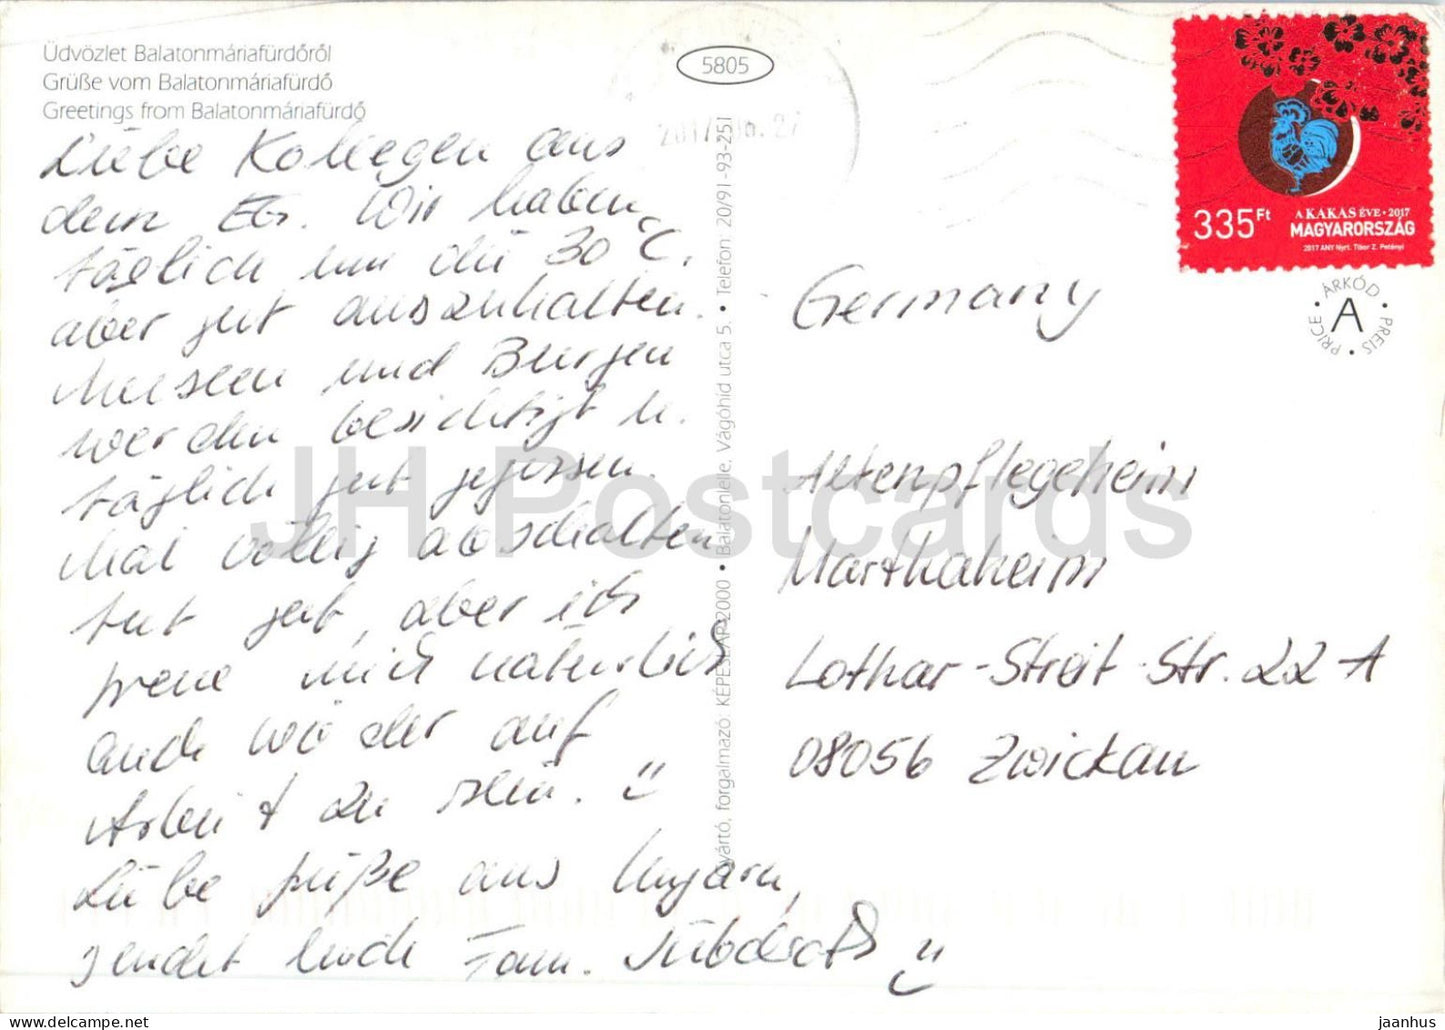 Üdvözlet Balatonmáriafürdőről
Grüße vom Balatonmáriafürdő
Greetings from Balatonmáriafürdő
5805
2017. 06. 27
335Ft
A KAKAS ÉVE • 2017
MAGYARORSZÁG
2017 ANY Nyrt. Tibor Z. Petényi
ÁRKÓD • PREIS • PRICE •
A
Liebe Kollegen aus
dem EG. Wir haben
täglich um die 30°C,
aber gut auszuhalten.
Museen und Burgen
werden besichtigt u.
täglich gut gegessen.
Mal völlig abschalten
tut gut, aber ich
freue mich natürlich
auch wieder auf
Arbeit zu sein.
Liebe Grüße aus Ungarn,
sendet Euch Fam.
Germany
Altenpflegeheim
Marthaheim
Lothar-Streit-Str. 22 A
08056 Zwickau
Gyártó, forgalmazó: KÉPESLAP 2000 • Balatonlelle, Vágóhíd utca 5. • Telefon: 20/91-93-251
JH Postcards
www.delcampe.net
jaanhus